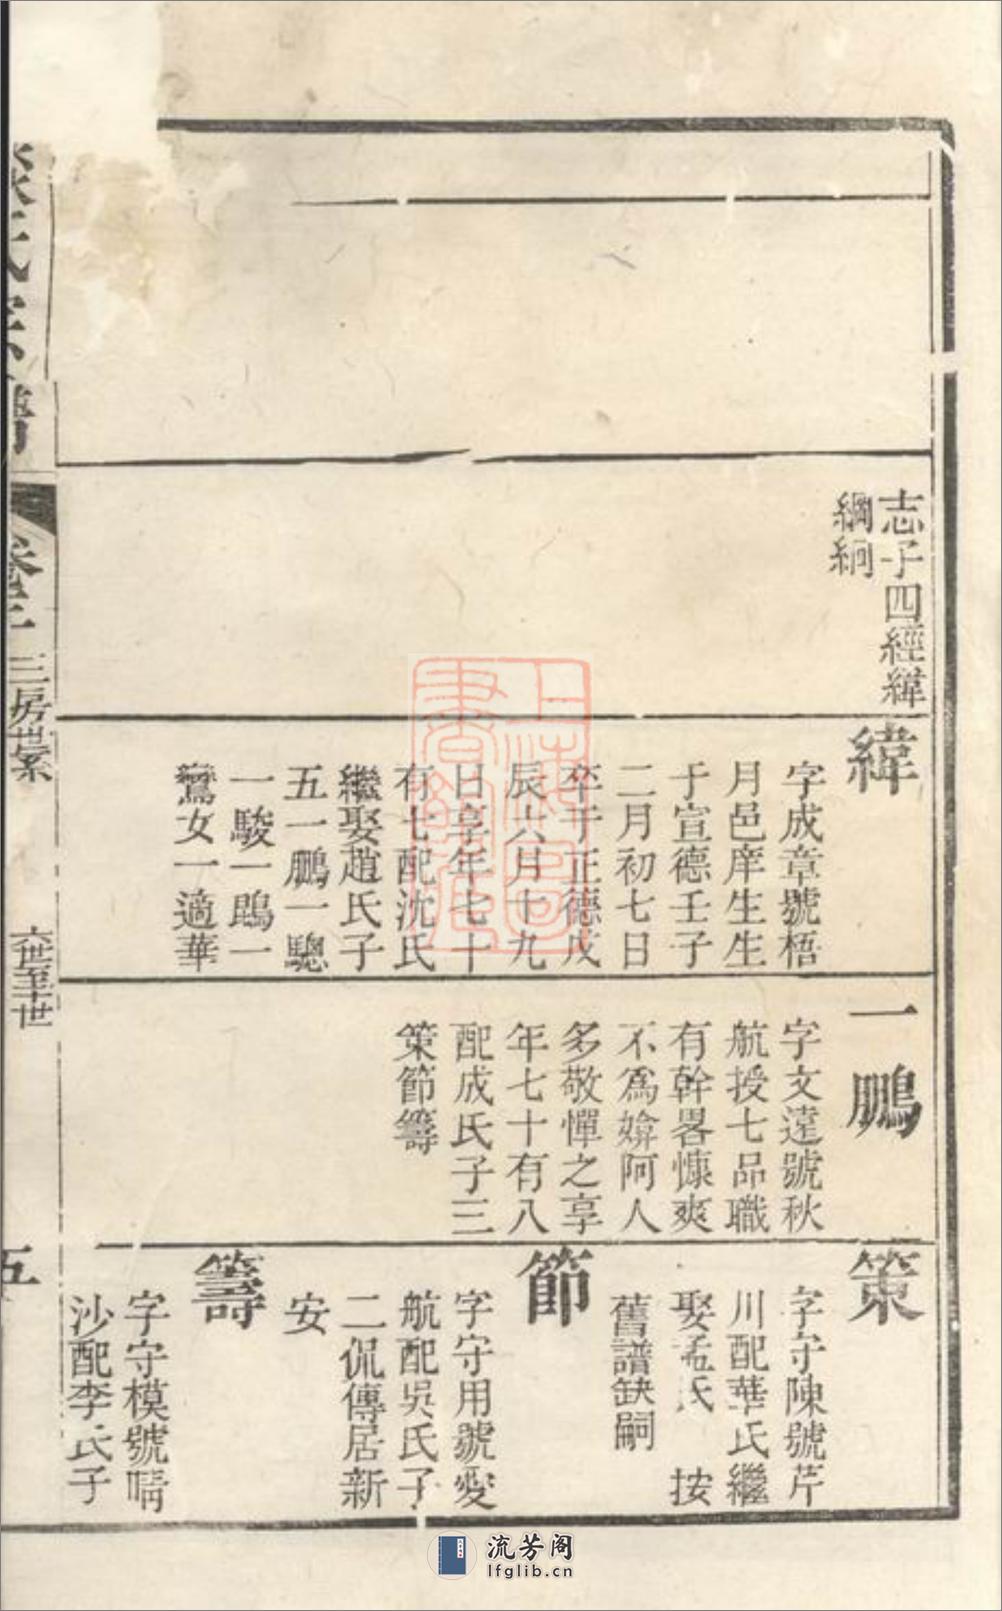 志子四經緯
綱絅
緯
字成章號梧
月邑庠生生
于宣德壬子
二月初七日
卒于正德戊
辰六月十九
日享年七十
有七配沈氏
繼娶趙氏子
五一鵬一驄
一駿一鵾一
鸞女一適華
一鵬
字文遠號秋
航授七品職
有幹畧慷爽
不爲媕阿人
多敬憚之享
年七十有八
配成氏子三
策節籌
策
字守陳號芹
川配華氏繼
娶孟氏 按
舊譜缺嗣
節
字守用號愛
航配吳氏子
二侃傳居新
安
籌
字守模號晴
沙配李氏子
氏宗譜
卷二 三房世系
六世至十世
五
上海圖書館藏
流芳阁
lfglib.cn